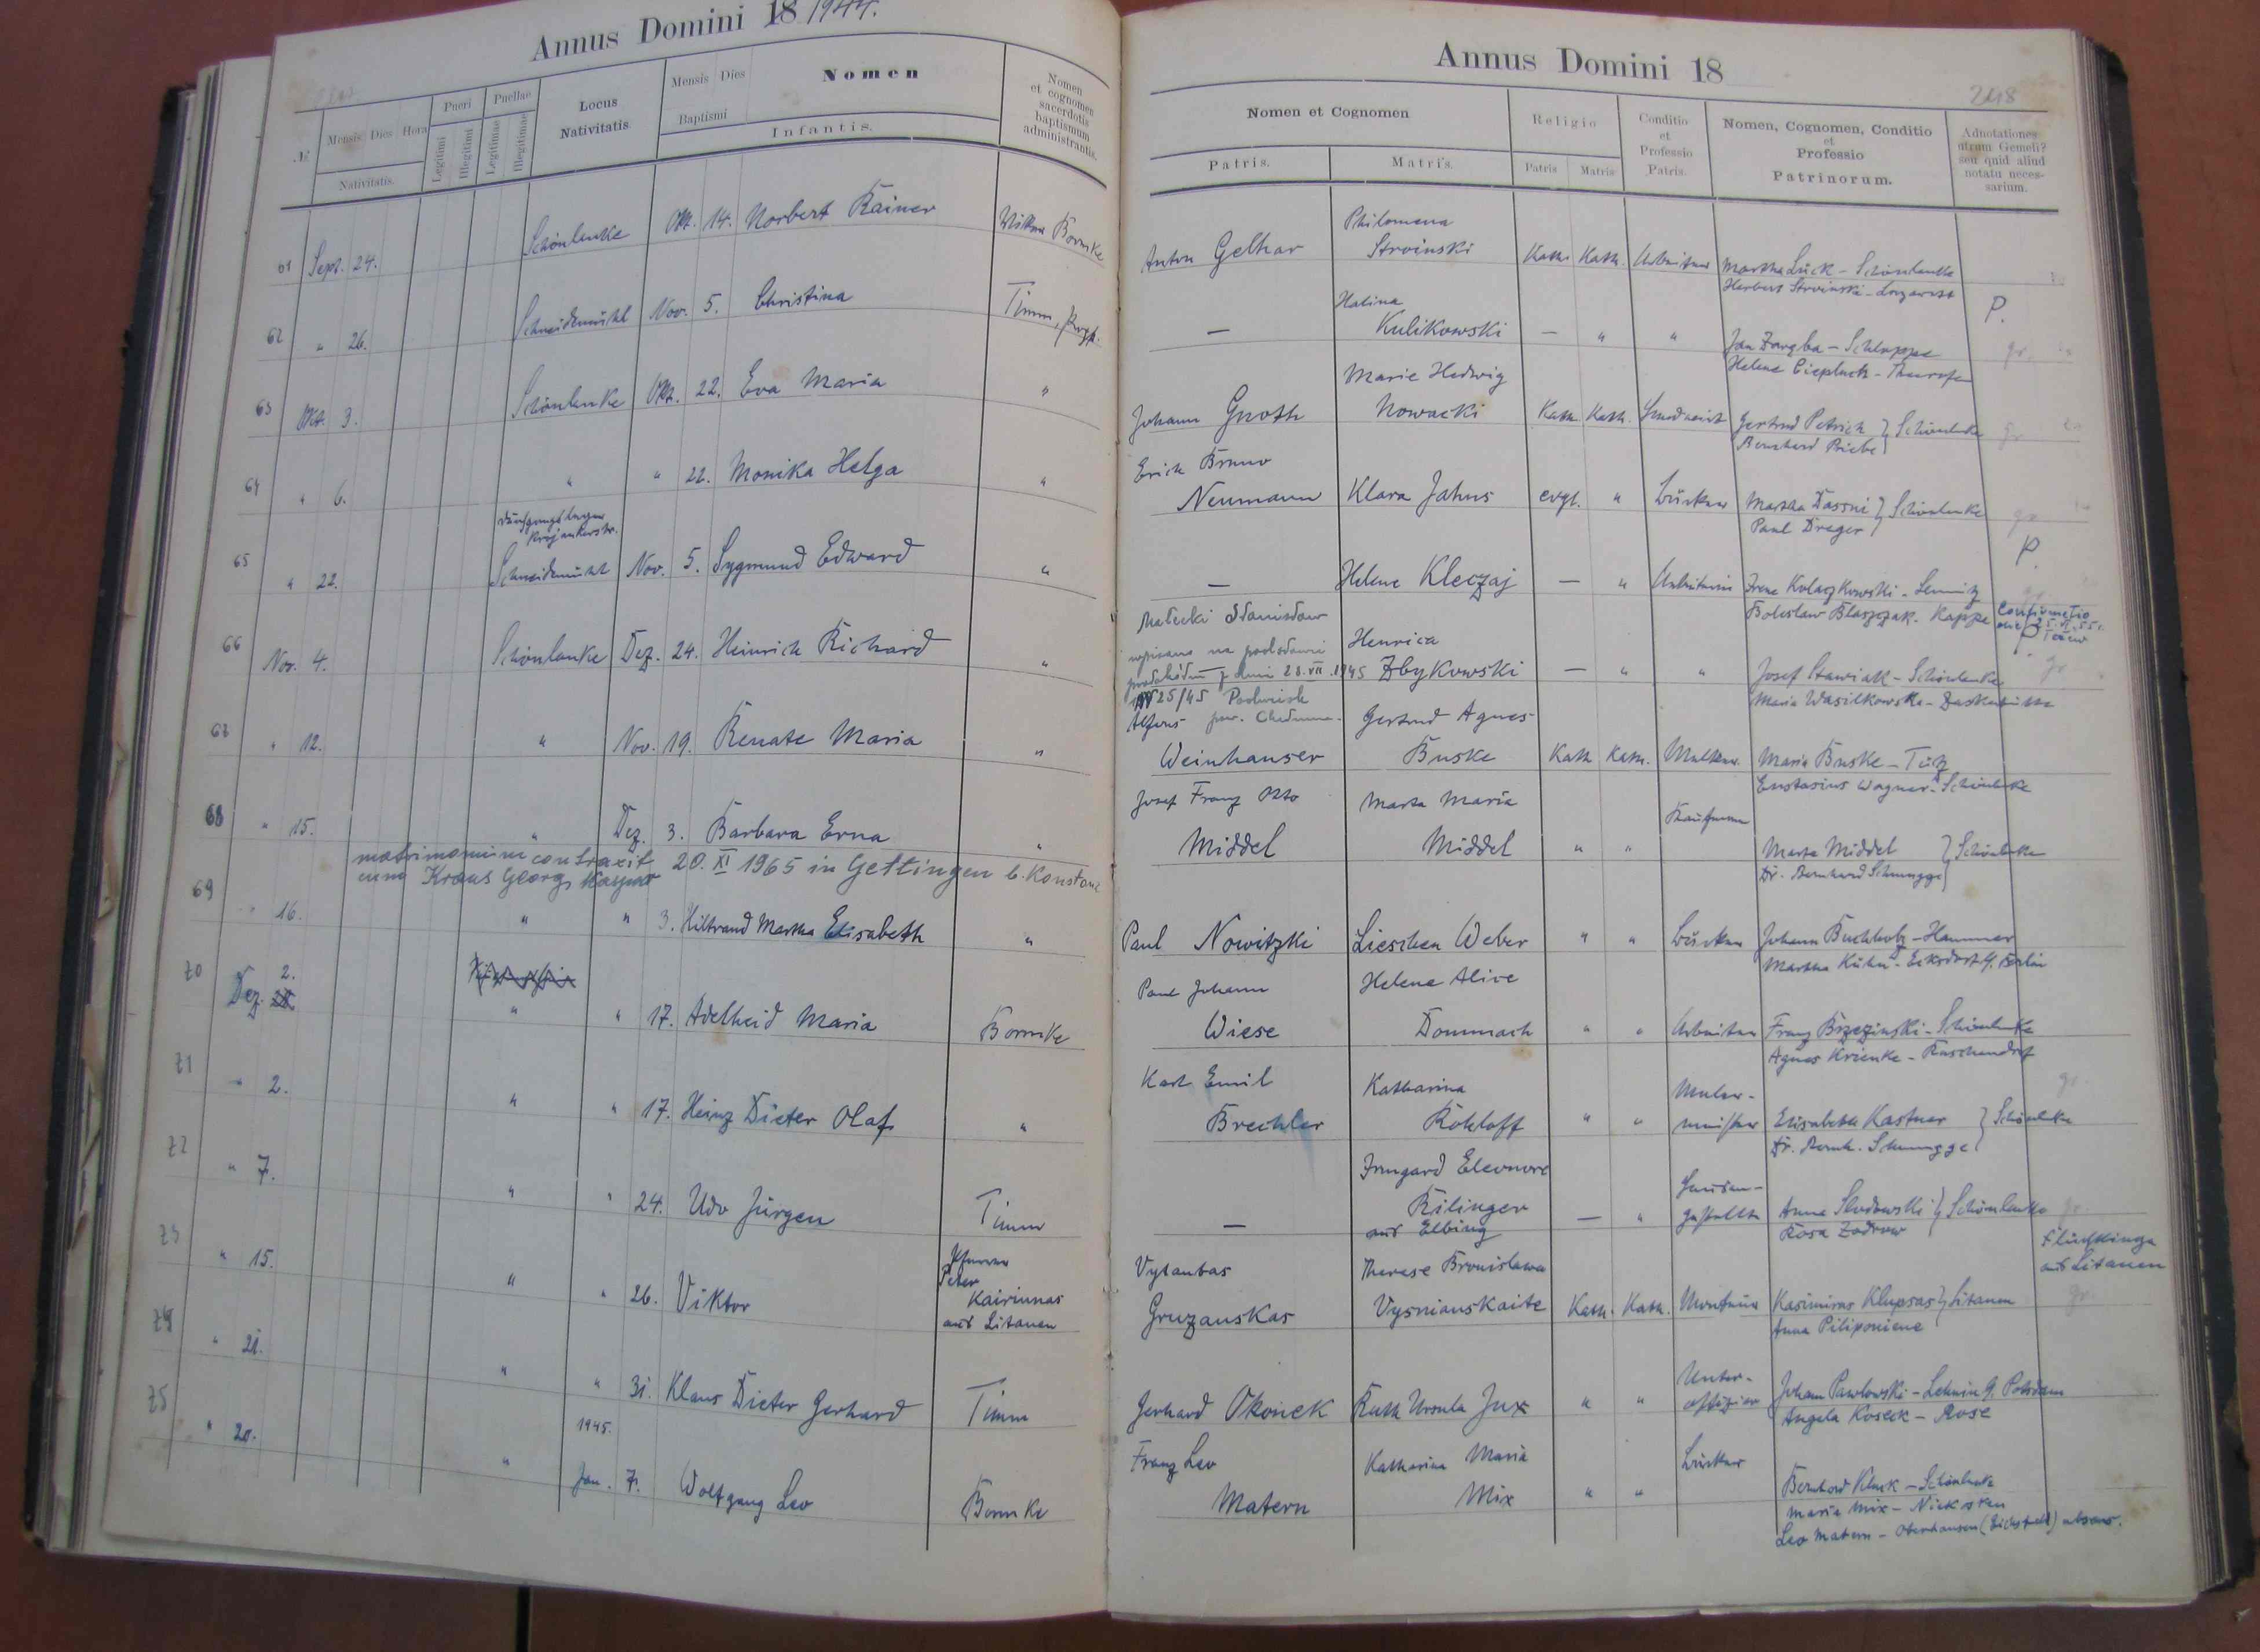 Annus Domini 18 1944.
№
Mensis Dies Hora
Nativitatis.
Pueri
Legitimi
Illegitimi
Puellae
Legitimae
Illegitimae
Locus
Nativitatis
Mensis Dies
Baptismi
Nomen
Infantis.
Nomen
et cognomen
sacerdotis
baptismum
administrantis.
61 Sept. 24. Schönlanke Okt. 14. Norbert Rainer Vikar Bornke
62 " 26. Schneidemühl Nov. 5. Christina Timm, Propst.
63 Okt. 3. Schönlanke Okt. 22. Eva Maria "
64 " 6. " " 22. Monika Helga "
Durchgangslager
Krojankerstr.
65 " 22. Schneidemühl Nov. 5. Sygmund Edward "
66 Nov. 4. Schönlanke Dez. 24. Heinrich Richard "
67 " 12. " Nov. 19. Renate Maria "
68 " 15. " Dez. 3. Barbara Erna "
matrimonium contraxit 20. XI 1965 in Gettingen b. Konstanz
cum Kraus Georg Kaspar
69 " 16. " " 3. Hiltraud Martha Elisabeth "
70 Dez. 2. " " 17. Adelheid Maria Bornke
71 " 2. " " 17. Heinz Dieter Olaf "
72 " 7. " " 24. Udo Jürgen Timm
73 " 15. " " 26. Viktor Pfarrer
Peter
Kairiunas
aus Litauen
74 " 21. " " 31. Klaus Dieter Gerhard Timm
1945.
75 " 20. " Jan. 7. Wolfgang Leo Bornke
Annus Domini 18
248
Nomen et Cognomen
Patris. Matris.
Religio
Patris Matris
Conditio
et
Professio
Patris.
Nomen, Cognomen, Conditio
et
Professio
Patrinorum.
Adnotationes
utrum Gemeli?
seu quid aliud
notatu neces-
sarium.
Philomena
Anton Gelhar Stroinski Kath. Kath. Arbeiter Martha Lück - Schönlanke
Herbert Stroinski
P.
Halina
— Kulikowski — " " Jan Zaregba - Schloppe
Helene Ciepluch
gr.
Marie Hedwig
Johann Gnoth Nowacki Kath. Kath. Gertrud Petrich } Schönlanke
Bernhard Priebe
gr
Erich Bruno
Neumann Klara Jahns evgl. " Martha Dassni } Schönlanke
Paul Dreger
gr
P.
— Helene Kleczaj — " Arbeiterin Irene Kolaczkowski - Lemnitz
Boleslaw Blaszczak. Kappe
Małecki Stanisław
wpisano na podstawie Henrica
z dnia 28. VII. 1945 Zbykowski — " " Josef Stawiak - Schönlanke
Nr 25/45
Maria Wasilkowska
gr
Alfons Gertrud Agnes
Weinhauser Buske Kath Kath. Maria Buske - Tütz
Eustasius Wagner - Schönlanke
Josef Franz Otto Marta Maria Kaufmann
Middel Middel " " Marta Middel } Schönlanke
Dr. Bernhard Schmugge
Paul Nowitzki Lieschen Weber " " Johann Buchholz - Hammer
Martha Kühn
Paul Johann Helene Alice
Wiese Dommach " " Arbeiter Franz Brzezinski - Schönlanke
Agnes Krienke - Ruschendorf
gr
Karl Emil Katharina Maler-
Brechler Rohloff " " meister Elisabeth Kastner } Schönlanke
Dr. Bernh. Schmugge
Irmgard Eleonore
— Rilinger — " Anna Slodowski } Schönlanke
aus Elbing Rosa Zodrow
gr.
Flüchtlinge
aus Litauen
Vytautas Therese Bronislawa
Gruzauskas Vysniauskaite Kath. Kath. Monteur Kasimiras Klupsas } Litauen
Anna Piliponiene
gr.
Unter-
Gerhard Okonek Ruth Ursula Jux " " offizier Johann Pawlowski - Lehnin b. Potsdam
Angela Koseck - Rose
Franz Leo Katharina Maria
Matern Mix " " Bernhard Kluck - Schönlanke
Maria Mix
Leo Matern - Oberhausen